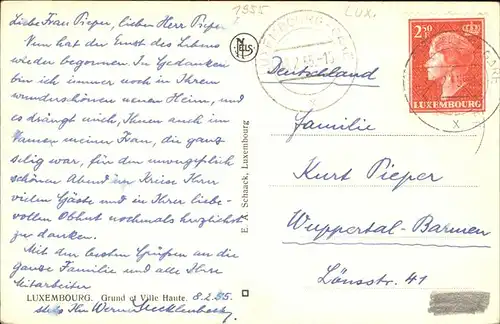 1955
LUX.
Liebe Frau Pieper, lieber Herr Pieper
Nun hat der Ernst des Lebens
wieder begonnen. In Gedanken
bin ich immer noch in Ihrem
wunderschönen neuen Heim, und
es drängt mich, Ihnen auch im
Namen meiner Frau, die ganz
selig war, für den unvergesslich
schönen Abend im Kreise Ihrer
vielen Gäste und in Ihrer liebe-
vollen Obhut nochmals herzlichst
zu danken.
Mit den besten Grüßen an die
ganze Familie und alle Ihre
Mitarbeiter
LUXEMBOURG. Grund et Ville Haute. 8.2.55
stets Ihr Werner Mecklenbeck
NELS
E. A. Schaack, Luxembourg
2.50
LUXEMBOURG
Deutschland
Familie
Kurt Pieper
Wuppertal-Barmen
Lönsstr. 41